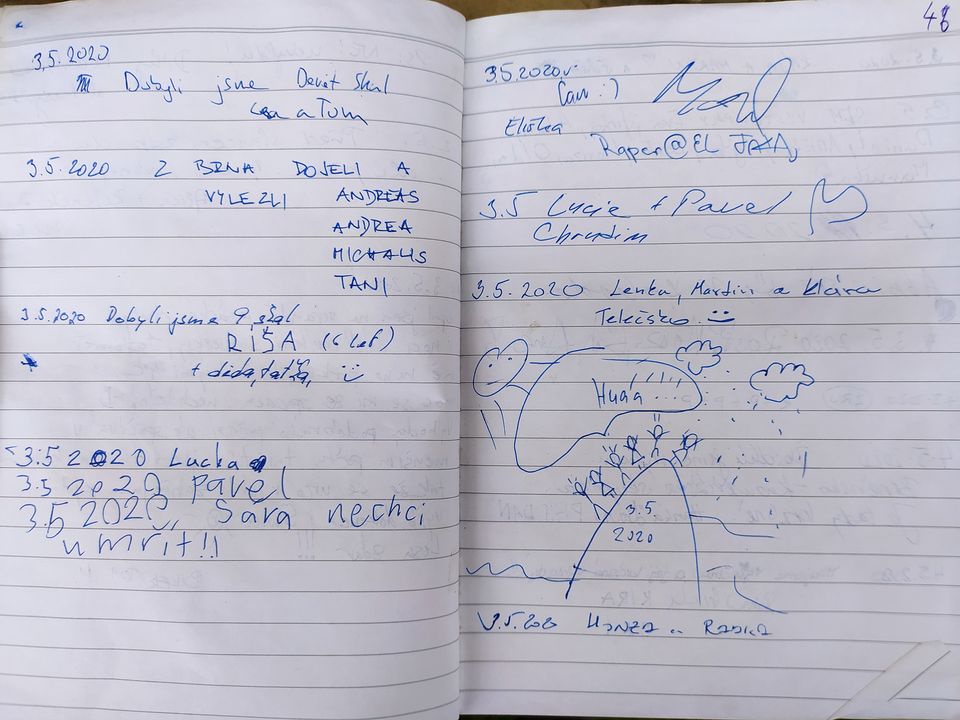 3.5.2020
Dobyli jsme Devět Skal
a Tom
3.5.2020 Z BRNA DOJELI A
VYLEZLI ANDREAS
ANDREA
MICHALIS
TANI
3.5.2020 Dobyli jsme 9 skal
RIŠA (6 let)
+ děda, taťka,
3.5 2020 Lucka
3.5 2020 pavel
3.5 2020, Sára nechci
umřít!!
48
3.5.2020
Čau :)
Eliška
Raper@EL JAXA
3.5 Lucie + Pavel
Chrudim
3.5.2020 Lenka, Martin a Klára
Telecísko
Huáá !!!...
3.5.
2020
3.5.2020 HONZA .. RADKA